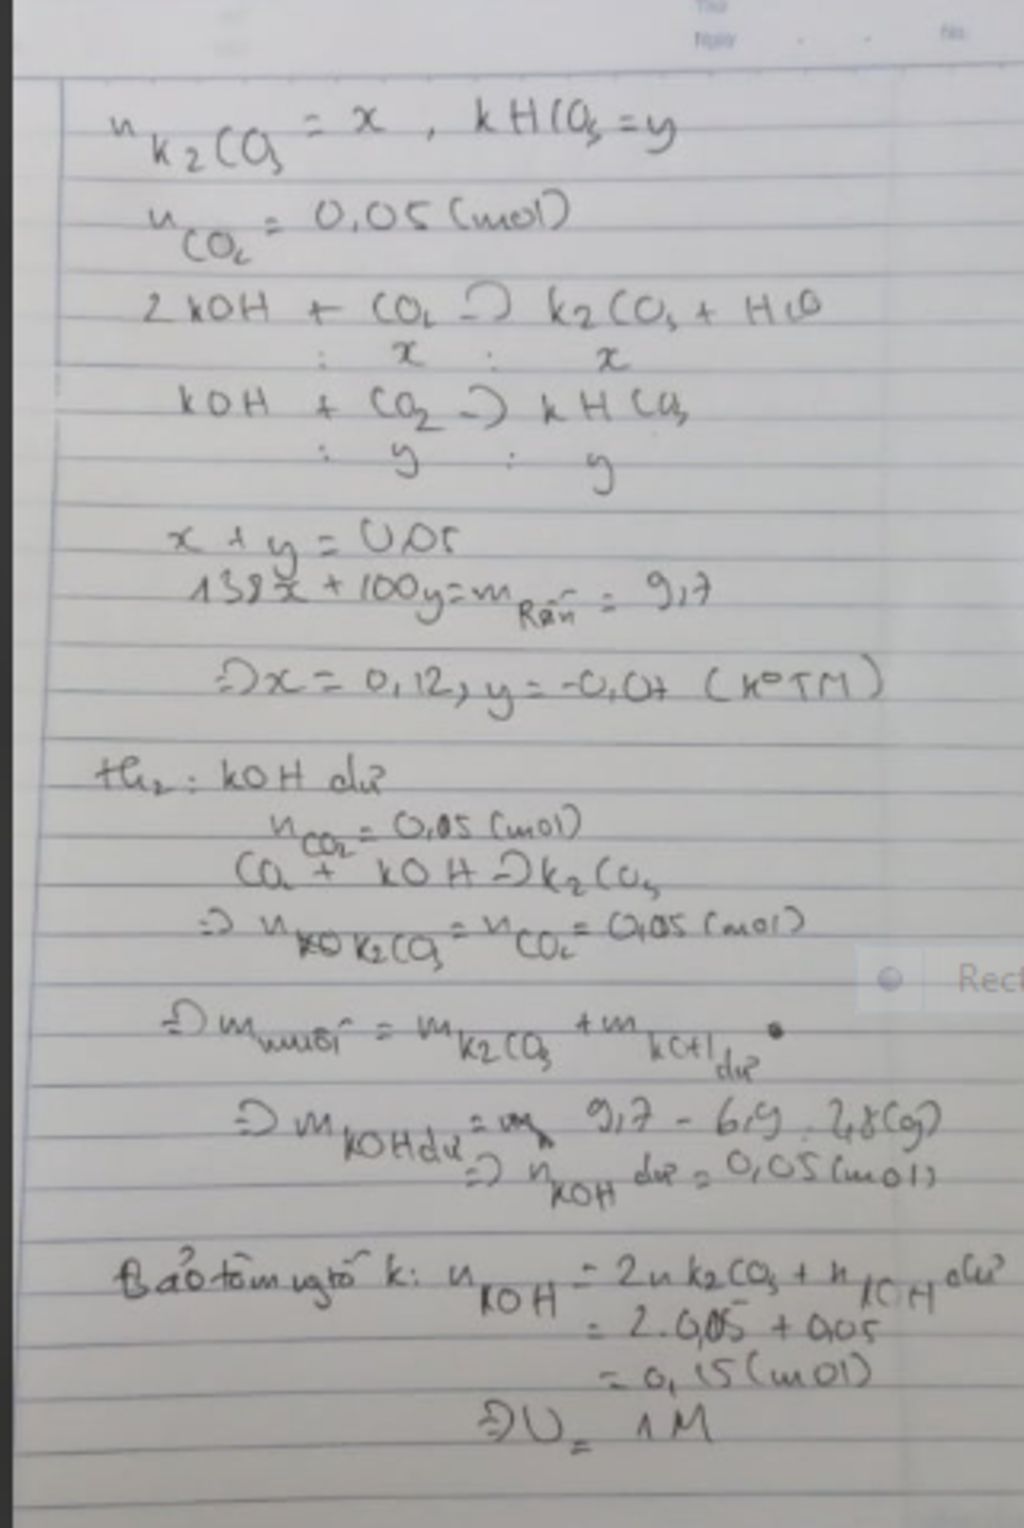 Ngày No
n K2CO3 = x , kHCO3 = y
nCO2 = 0,05 (mol)
2 kOH + CO2 => k2CO3 + H2O
: x : x
kOH + CO2 => kHCO3
: y : y
x + y = 0,05
138x + 100y = m Rắn = 9,7
=> x = 0,12, y = -0,07 (koTM)
th2: kOH dư
nCO2 = 0,05 (mol)
CO2 + kOH => k2CO3
=> n K2CO3 = nCO2 = 0,05 (mol)
=> m muối = m k2CO3 + m kOH dư
=> m KOH dư = 9,7 - 6,9 = 2,8 (g)
=> n KOH dư = 0,05 (mol)
Bảo toàn ngtố k: n KOH = 2n k2CO3 + n KOH dư
= 2.0,05 + 0,05
= 0,15 (mol)
= 1M
Rect